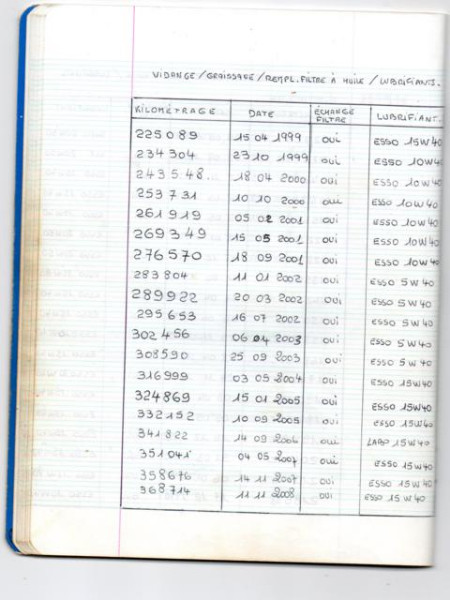 VIDANGE / GRAISSAGE / REMPL. FILTRE À HUILE / LUBRIFIANTS.
KILOMÉTRAGE DATE ÉCHANGE FILTRE LUBRIFIANT.
225089 15 04 1999 OUI ESSO 15W40
234304 23 10 1999 OUI ESSO 10W40
243548. 18 04 2000 OUI ESSO 10W40
253731 10 10 2000 OUI ESSO 10W40
261919 05 02 2001 OUI ESSO 10W40
269349 15 05 2001 OUI ESSO 10W40
276570 18 09 2001 OUI ESSO 10W40
283804 11 01 2002 OUI ESSO 5W40
289922 20 03 2002 OUI ESSO 5W40
295653 16 07 2002 OUI ESSO 5W40
302456 06 04 2003 OUI ESSO 5W40
308590 25 09 2003 OUI ESSO 5W40
316999 03 05 2004 OUI ESSO 15W40
324869 15 01 2005 OUI ESSO 15W40
332152 10 09 2005 OUI ESSO 15W40
341822 14 09 2006 OUI LABO 15W40
351041 04 05 2007 OUI ESSO 15W40
358676 14 11 2007 OUI ESSO 15W40
368714 11 11 2008 OUI ESSO 15W40